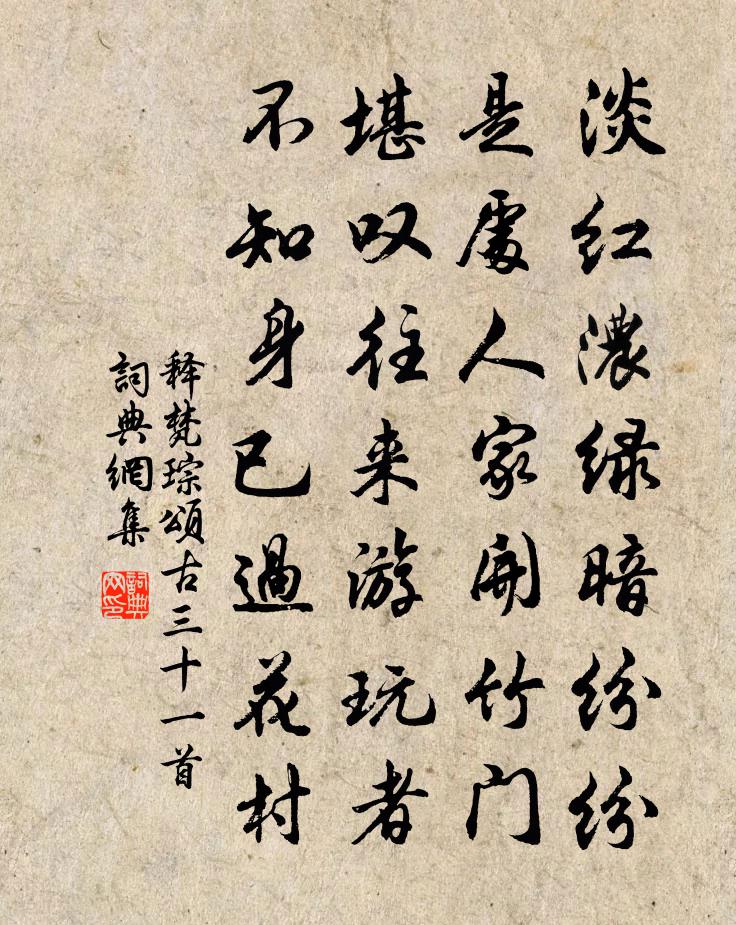 淡红濃绿暗纷纷
是處人家開竹门
堪叹往来游玩者
不知身已過花村
释梵琮頌古三十一首
詞典網集
詞典网印